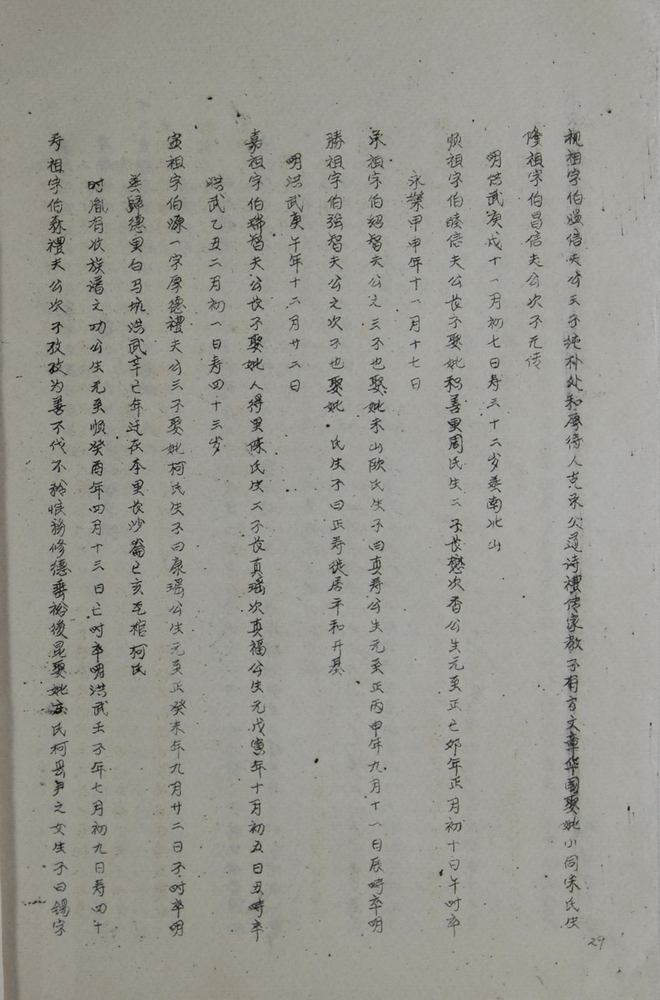 视祖字伯温信夫公三子纯朴处和厚待人克承父道诗禮传家教子有方文章华國娶妣小同宋氏生
隆祖字伯昌信夫公次子无传
明洪武庚戌十一月初七日寿三十二岁葬南北山
顺祖字伯睦信夫公长子娶妣积善里周氏生二子长懋次香公生元至正己卯年正月初十日午时卒
永樂甲申年十一月十七日
承祖字伯绍智夫公之三子也娶妣禾山欧氏生子曰真寿公生元至正丙申年九月十一日辰時卒明
勝祖字伯强智夫公之次子也娶妣 氏生子曰正寿徙居平和开基
明洪武庚午年十二月廿二日
嘉祖字伯瑞智夫公长子娶妣人得里陈氏生二子长真瑶次真福公生元戊寅年十月初五日丑時卒
洪武乙丑二月初一日寿四十三岁
寅祖字伯源一字厚德禮夫公三子娶妣柯氏生子曰康瑶公生元至正癸未年九月廿二日子时卒明
葬歸德里白马坑洪武辛巳年迁在本里长沙崙己亥瓦棺柯氏
时胤有汝族谱之功公生元至顺癸酉年四月十三日巳时卒明洪武壬子年七月初九日寿四十
寿祖字伯彝禮夫公次子孜孜为善不伐不矜恒務修德垂裕後昆娶妣 氏柯县尹之女生子曰錫字
29